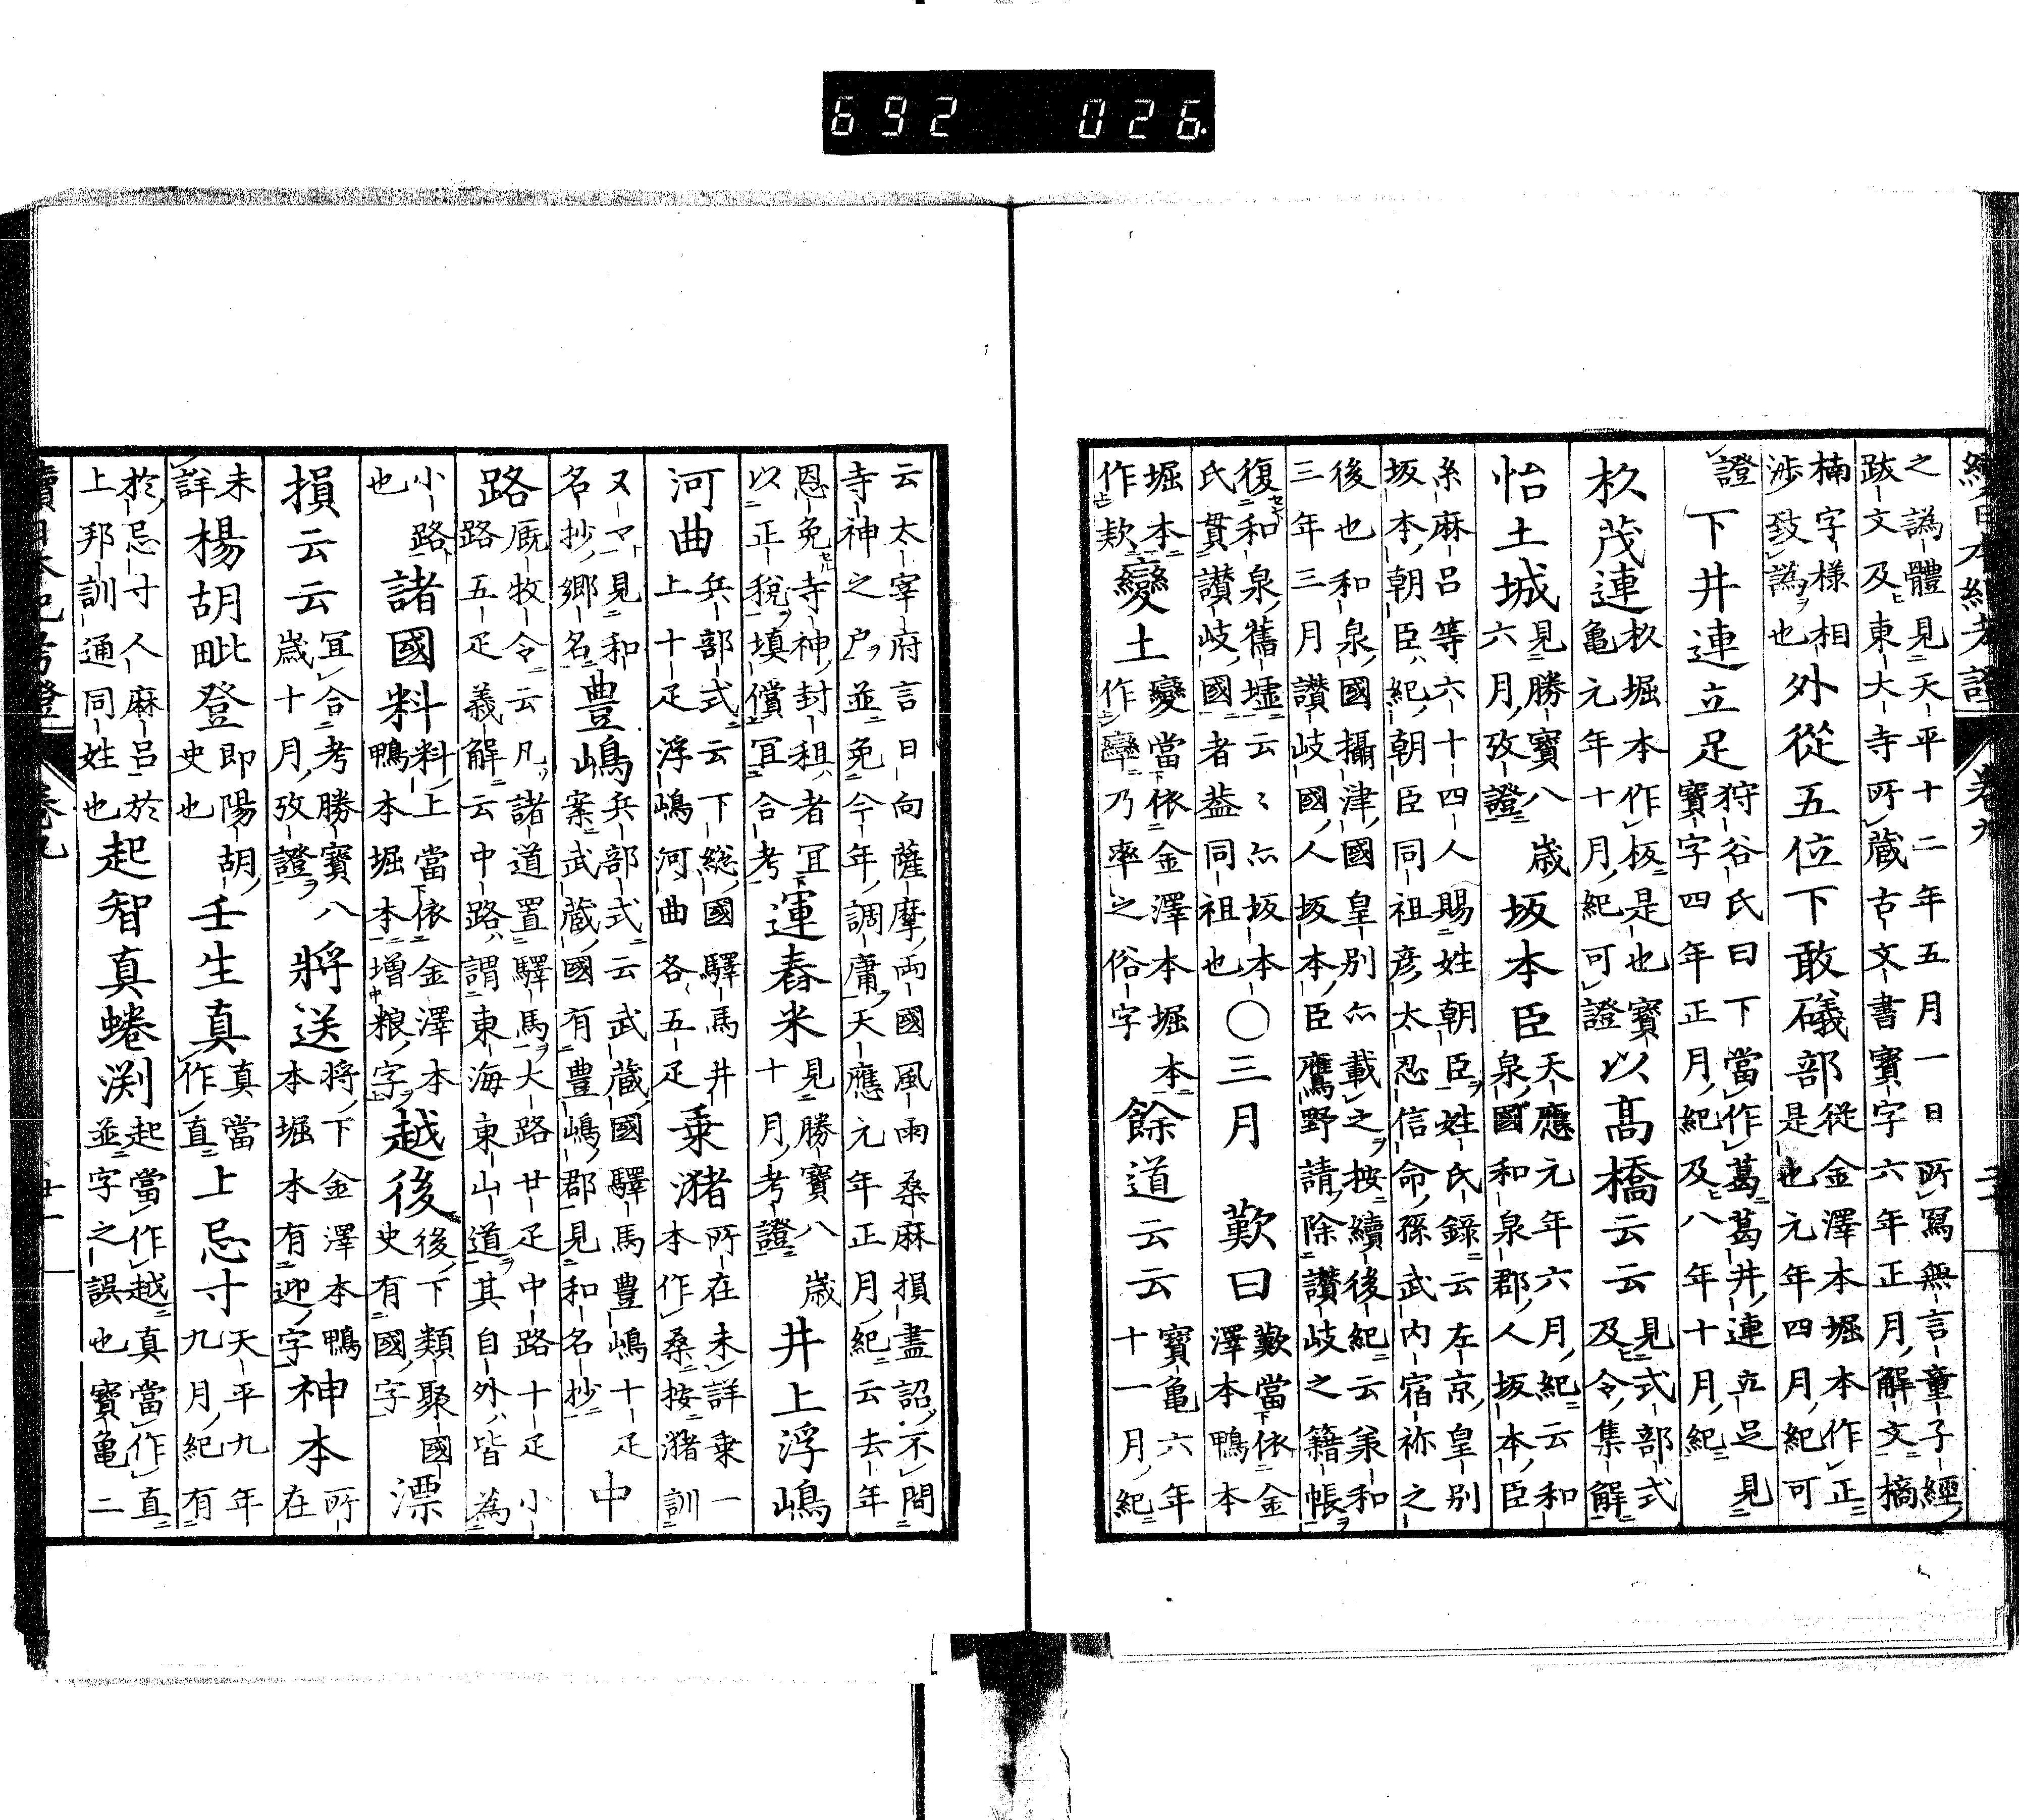 692 026.
續日本紀考證
卷九
之譌體見天平十二年五月一日所寫無言童子經
跋文及東大寺所藏古文書寶字六年正月解文摘
楠字樣相
涉致譌也
外從五位下敢礒部
從金澤本堀本作正
是也元年四月紀可
證
下井連立足
狩谷氏曰下當作葛葛井連立足見
寶字四年正月紀及八年十月紀
杦茂連
杦堀本作板是也寶
亀元年十月紀可證
以高橋云云
見式部式
及令集解
怡土城
見勝寶八歳
六月攷證
坂本臣
天應元年六月紀云和
泉國和泉郡人坂本臣
糸麻呂等六十四人賜姓朝臣姓氏錄云左京皇別
坂本朝臣紀朝臣同祖彦太忍信命孫武内宿祢之
後也和泉國攝津國皇別亦載之按續後紀云承和
三年三月讃岐國人坂本臣鷹野請除讃岐之籍帳
復和泉舊墟云々亦坂本
氏貫讃岐國者葢同祖也
○三月
歎曰
歎當依金
澤本鴨本
堀本
作欤
變土
變當依金澤本堀本
作䜌乃率之俗字
餘道云云
寶亀六年
十一月紀
云太宰府言日向薩摩両國風雨桑麻損盡詔不問
寺神之戸並免今年調庸天應元年正月紀云去年
恩免寺神封租者宜
以正税填償宜合考
運舂米
見勝寶八歳
十月考證
井上浮嶋
河曲
兵部式云下総國驛馬井
上十疋浮嶋河曲各五疋
乗潴
所在未詳乗一
本作桑按潴訓
又マ見和
名抄郷名
豊嶋
兵部式云武蔵國驛馬豊嶋十疋
案武蔵國有豊嶋郡見和名抄
中
路
厩牧令云凡諸道置驛馬大路廿疋中路十疋小
路五疋義解云中路謂東海東山道其自外皆為
小路
也
諸國料
料上當依金澤本
鴨本堀本増粮字
越後
後下類聚國
史有國字
漂
損云云
宜合考勝寶八
歳十月攷證
將送
將下金澤本鴨
本堀本有迎字
神本
所
在
未
詳
楊胡毗登
即陽胡
史也
壬生真
真當
作直
上忌寸
天平九年
九月紀有
於忌寸人麻呂於
上邦訓通同姓也
起智真蜷渕
起當作越真當作直
並字之誤也寶亀二
續日本紀考證
卷九
廿一